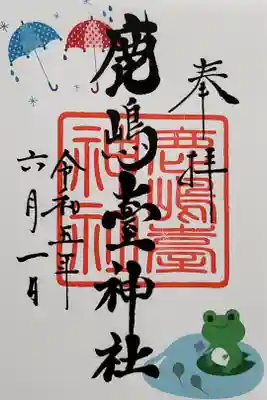 奉拝
鹿嶋臺神社
令和五年
六月一日
鹿嶋臺
神社